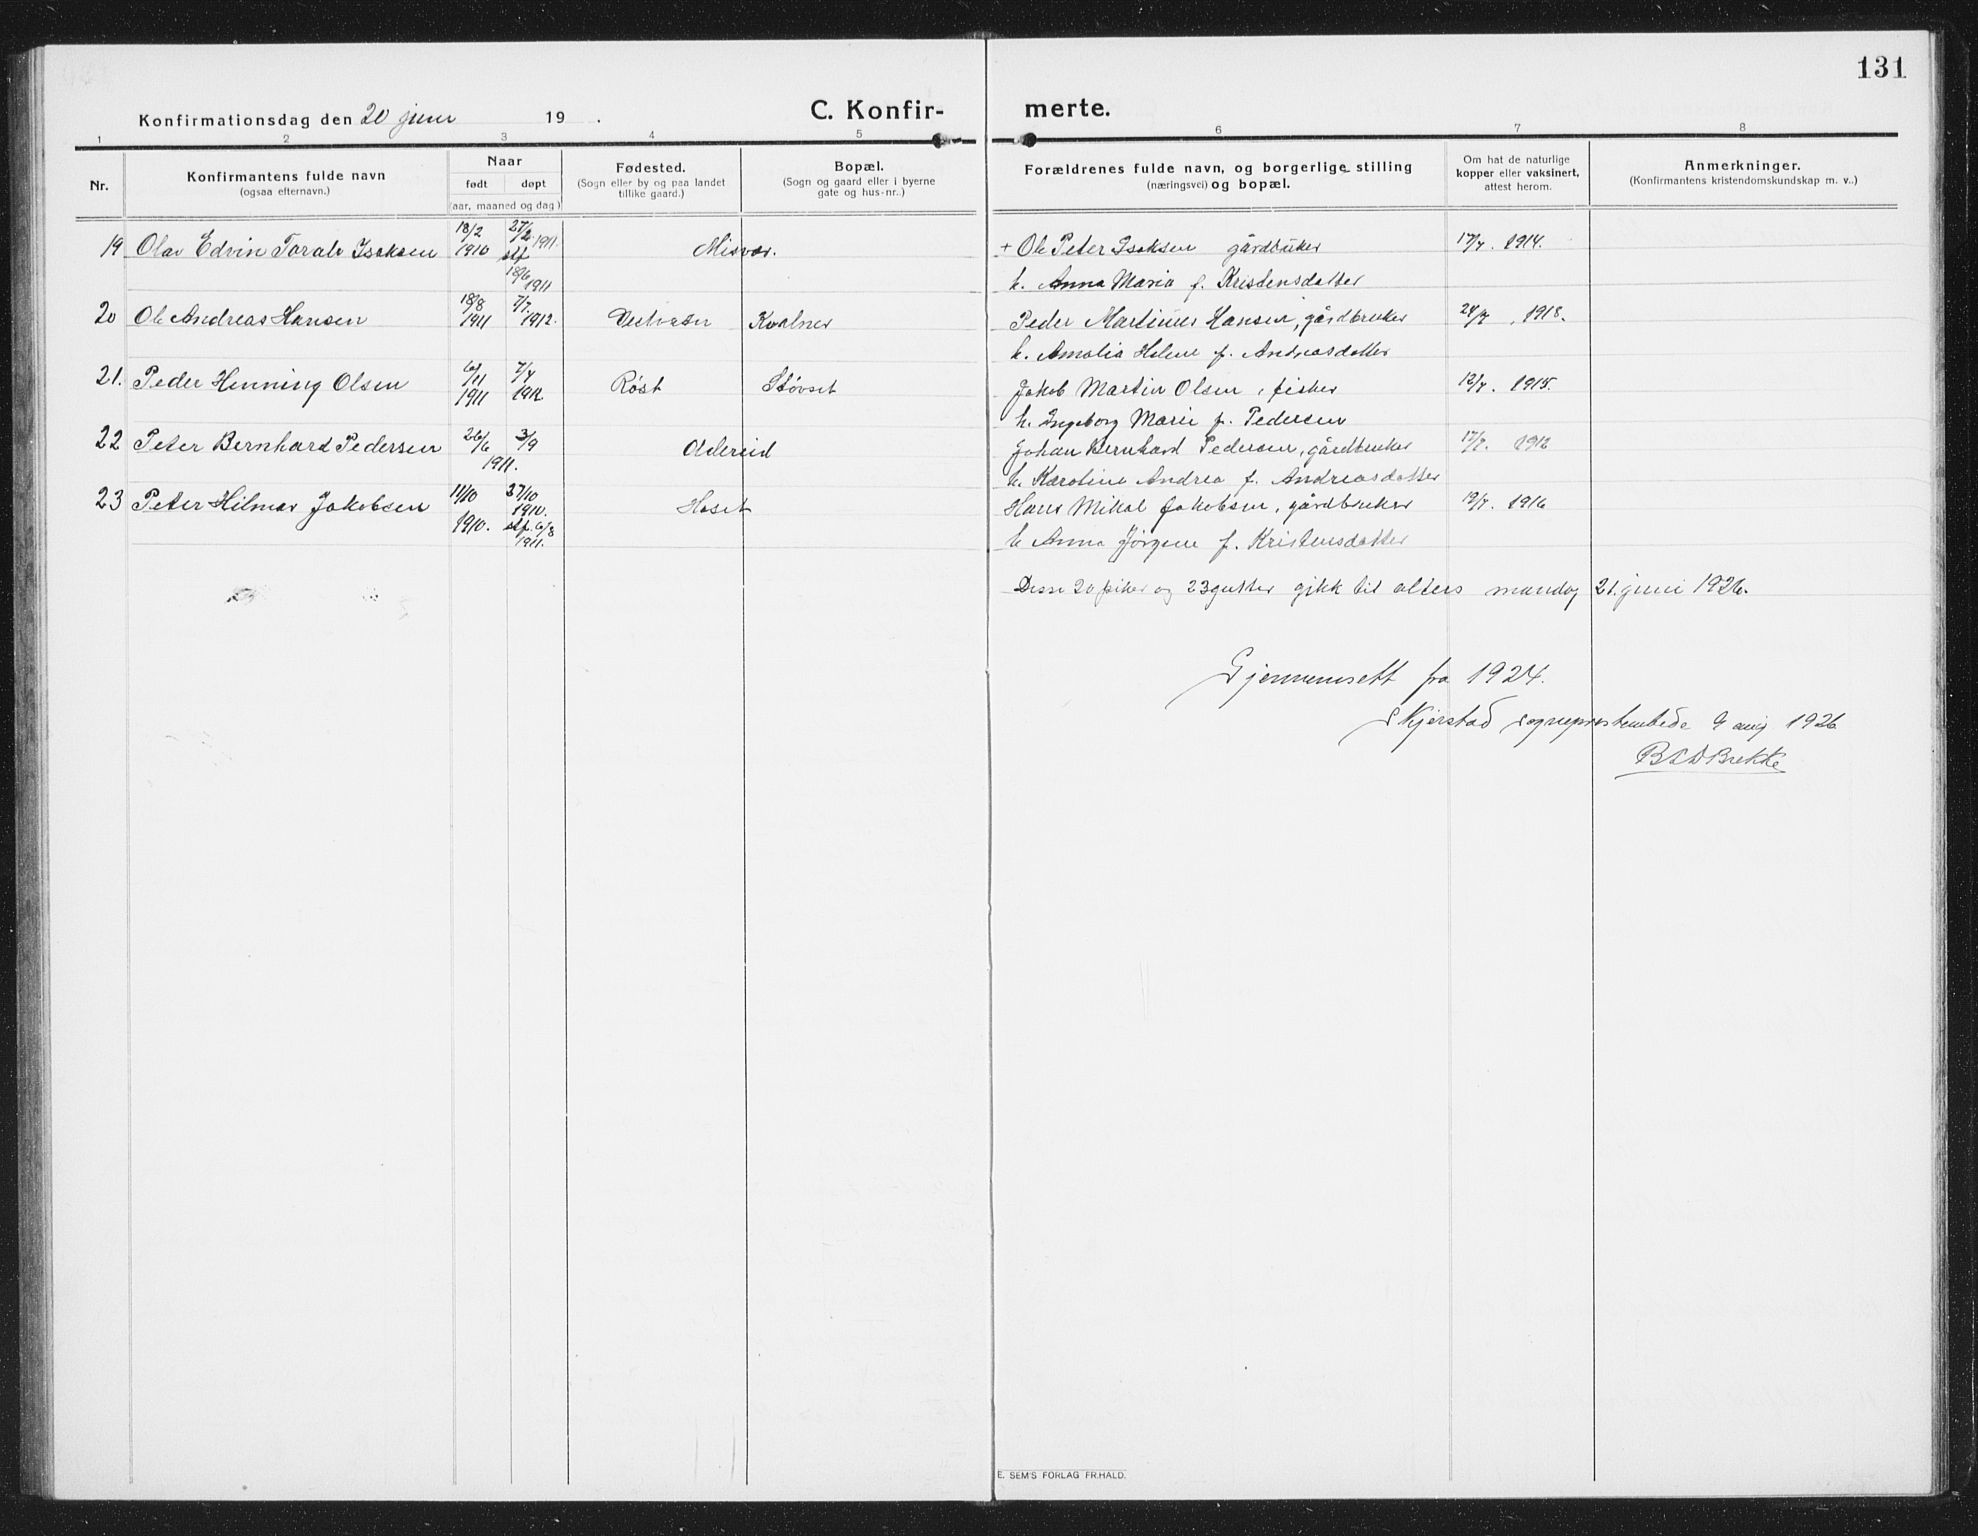 131
Konfirmationsdag den 20 juni 19 .
C. Konfir-
merte.
1 2 3 4 5 6 7 8
Nr.
Konfirmantens fulde navn
(ogsaa efternavn.)
Naar
født døpt
(aar, maaned og dag)
Fødested.
(Sogn eller by og paa landet
tillike gaard.)
Bopæl.
(Sogn og gaard eller i byerne
gate og hus-nr.)
Forældrenes fulde navn, og borgerlige stilling
(næringsvei) og bopæl.
Om hat de naturlige
kopper eller vaksinert,
attest herom.
Anmerkninger.
(Konfirmantens kristendomskundskap m. v.)
19 Olav Edvin Toralv Isaksen 18/2 1910 27/2 1911. stf 18/6 1911 Misvær. + Ole Peter Isaksen gårdbruker 17/7. 1914.
h. Anna Maria f. Kristensdatter
20 Ole Andreas Hansen 18/8 1911 7/7. 1912. Kvalnes Peder Martinus Hansen, gårdbruker 24/7, 1918.
h. Amalia Helene f. Andreasdatter
21. Peder Henning Olsen 6/11 1911 7/7 1912 Røst Støvset Jakob Martin Olsen, fisker 12/7. 1915.
h. Ingeborg Marie f. Pedersen
22 Peter Bernhard Pedersen 26/6 3/9 1911. Oldereid Johan Bernhard Pedersen, gårdbruker 17/7. 1912
h. Karoline Andrea f. Andreasdatter
23 Peter Hilmar Jakobsen 11/10 1910. 27/10 1910. stf. 6/8 1911. Høset Hans Mikal Jakobsen, gårdbruker 19/7. 1916
h Anna Jørgine f. Kristensdatter
Disse 20 piker og 23 gutter gikk til alters mandag 21. juni 1926.
Gjennemsett fra 1924.
Skjerstad sogneprestembede 9 aug 1926
Brekke
E. SEM'S FORLAG FR.HALD.